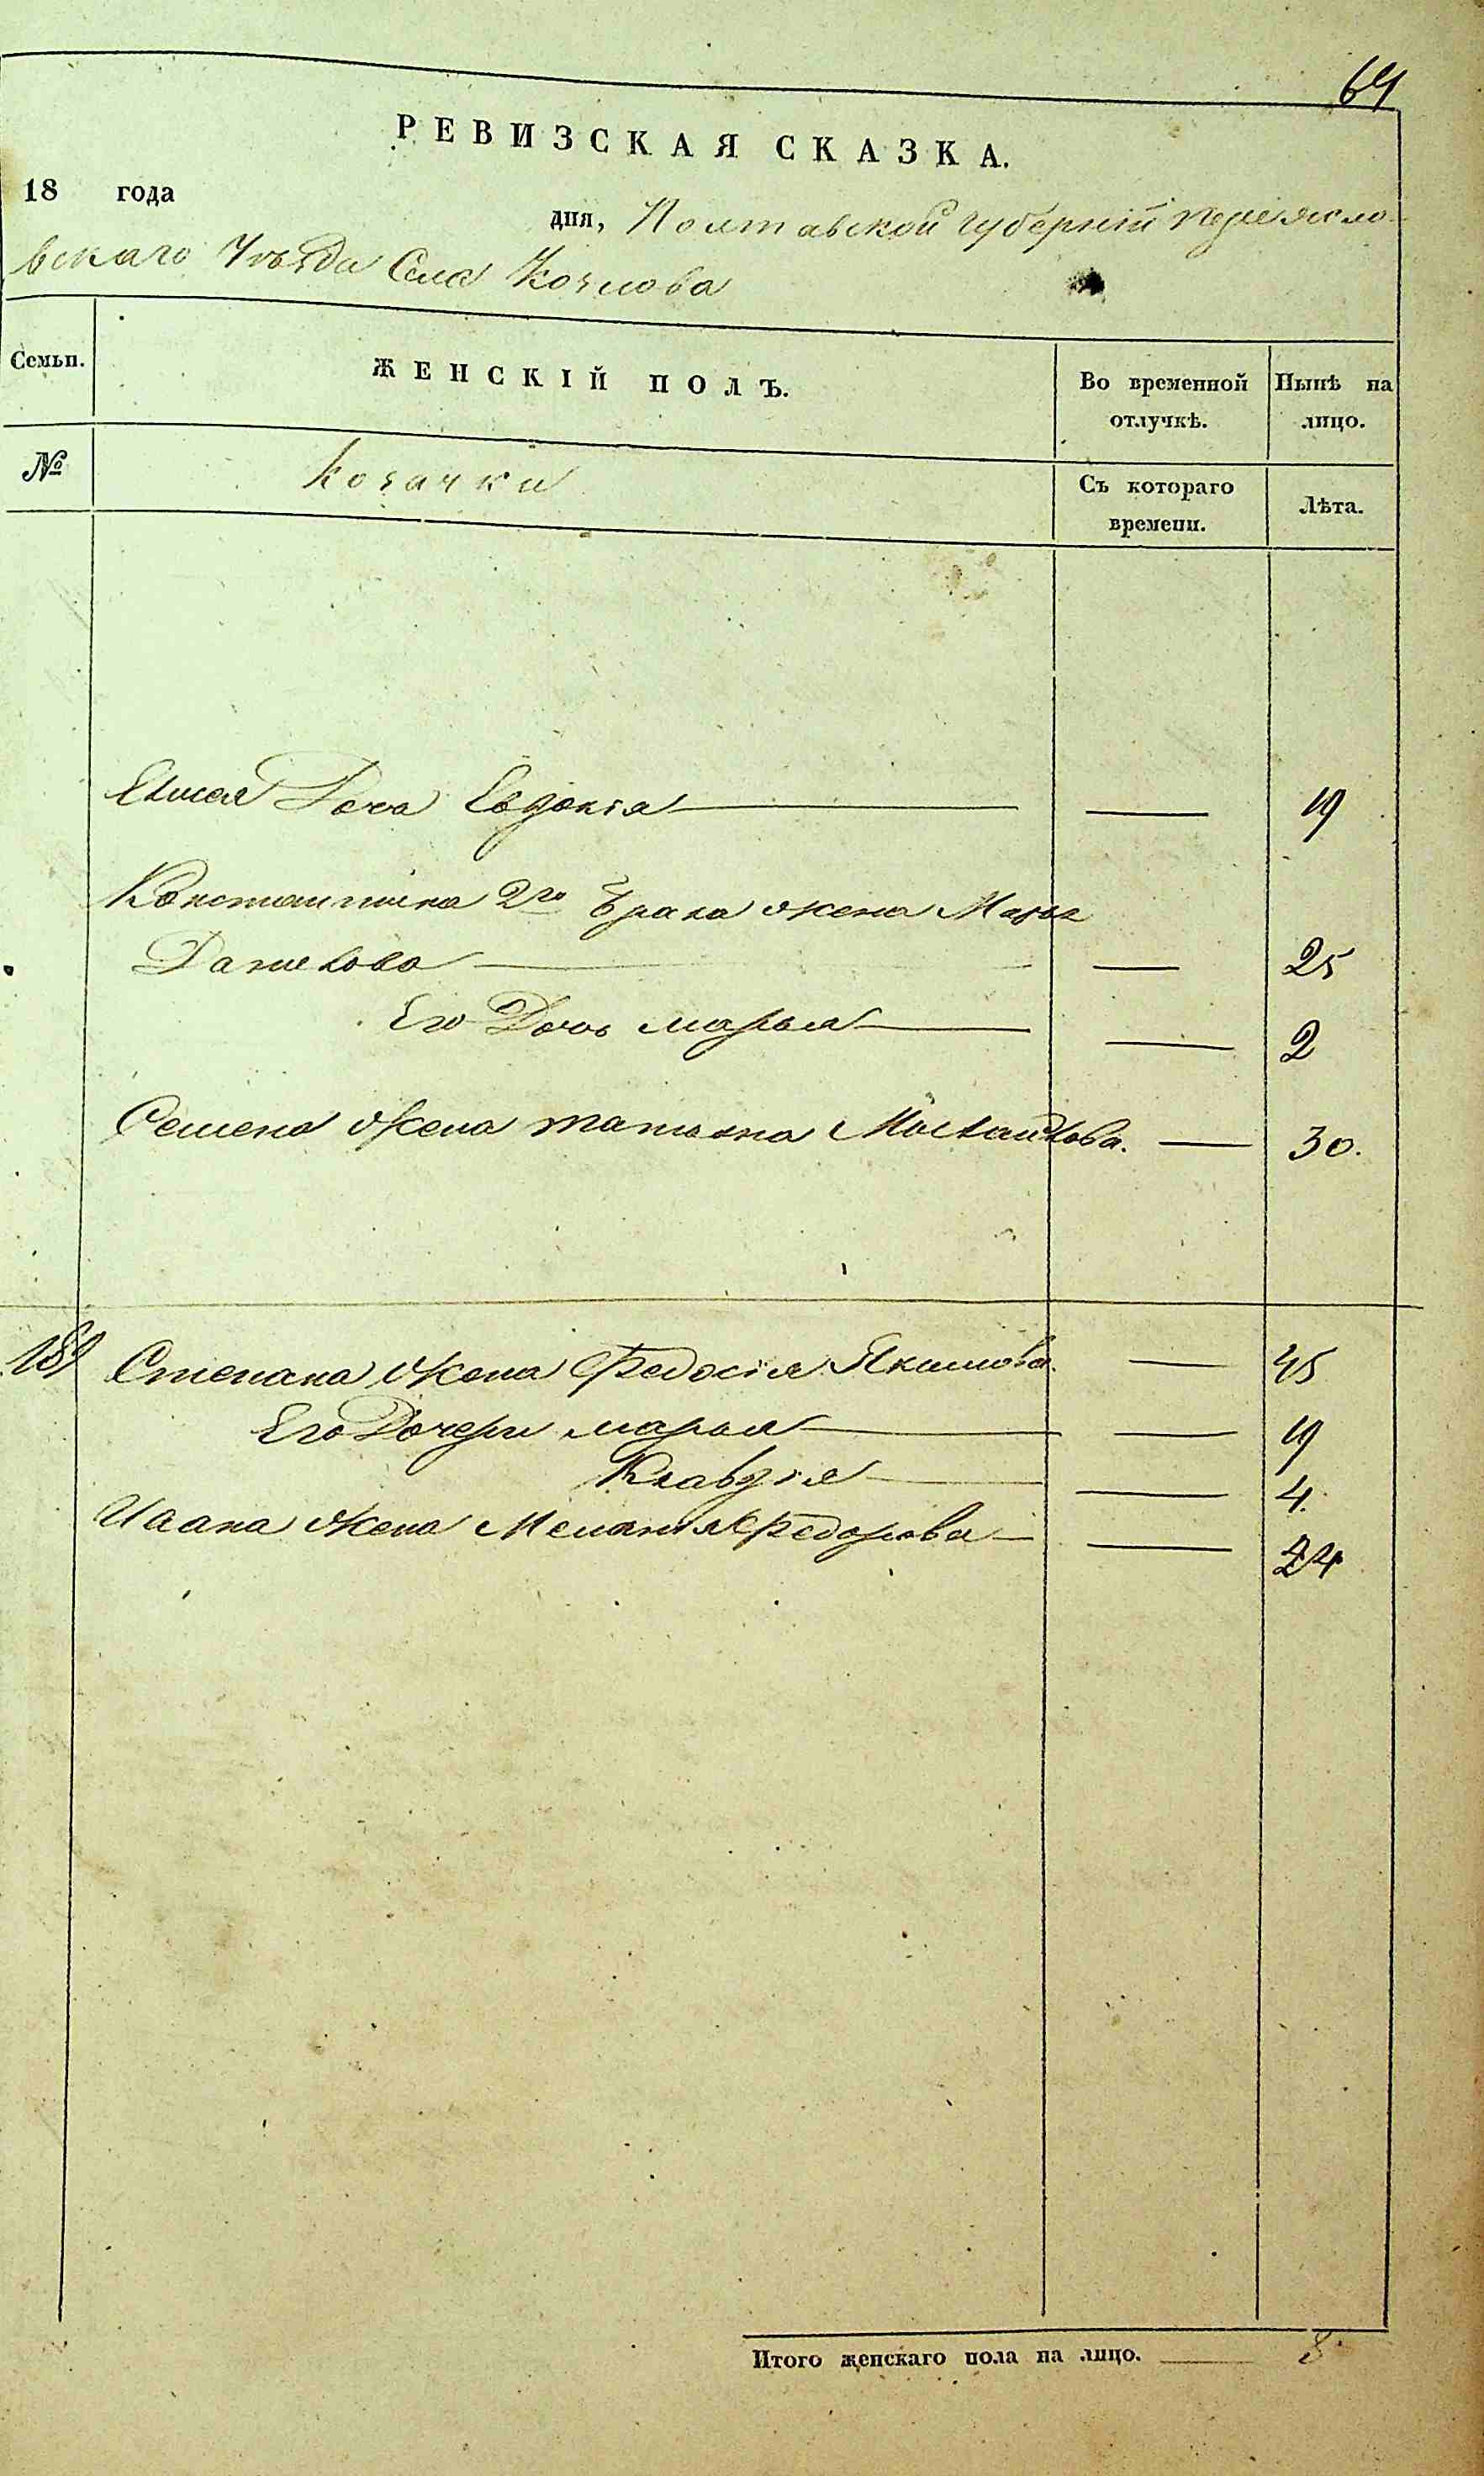 64
РЕВИЗСКАЯ СКАЗКА.
18 года дня, Полтавской губерніи Переясло-
вскаго Уѣзда Села Козлова
Семьи. ЖЕНСКІЙ ПОЛЪ. Во временной отлучкѣ. Нынѣ на лицо.
№ Козачки Съ котораго времени. Лѣта.
Дочь Евдокія — — 19
Константина 2го брака жена Марья
Данилова — — 25
Его Дочь марья — — 2
Семена Жена татьяна — 30.
189 Степана Жена Федосія Якимова. — 45
Его Дочери марья — — 19
Клавдія — — 4.
Ивана Жена Меланія Федорова — — 24
Итого женскаго пола на лицо. — 8